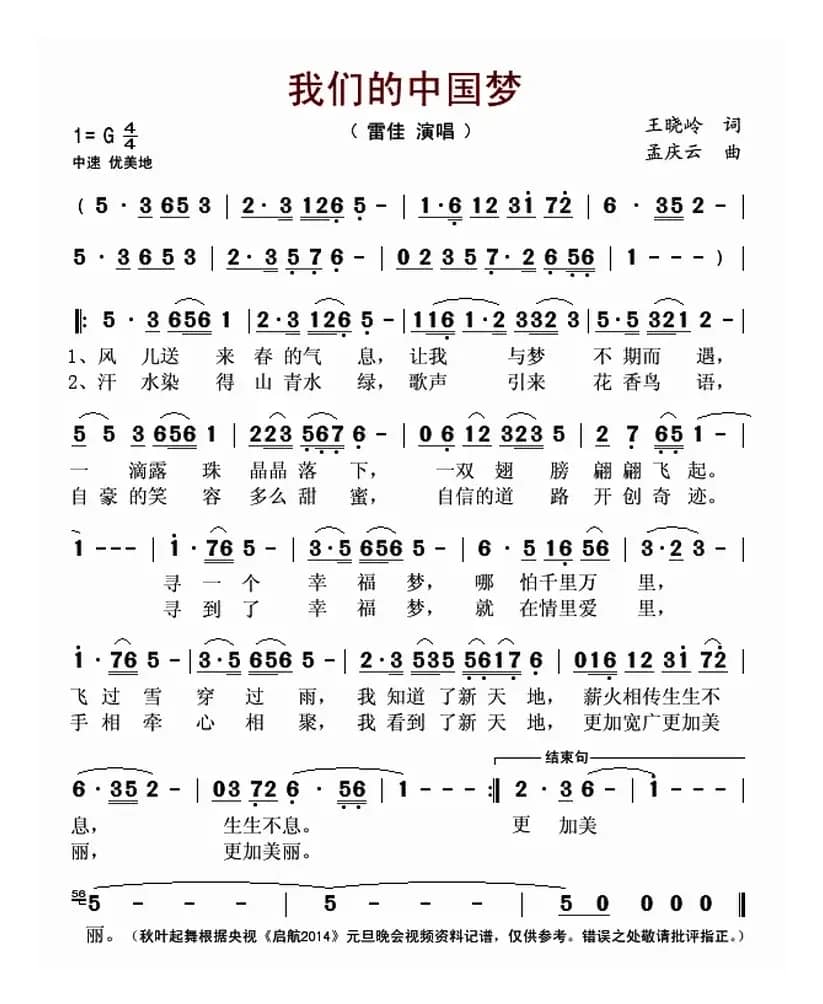 我们的中国梦
（ 雷佳 演唱 ）
1= G 4/4
王晓岭 词
中速 优美地
孟庆云 曲
( 5 · 3 6 5 3 | 2 · 3 1 2 6 5 - | 1 · 6 1 2 3 1 7 2 | 6 · 3 5 2 - |
5 · 3 6 5 3 | 2 · 3 5 7 6 - | 0 2 3 5 7 · 2 6 5 6 | 1 - - - )
‖: 5 · 3 6 5 6 1 | 2 · 3 1 2 6 5 - | 1 1 6 1 · 2 3 3 2 3 | 5 · 5 3 2 1 2 - |
1、风 儿送 来 春 的气 息，让我 与梦 不 期而 遇，
2、汗 水染 得 山 青水 绿，歌声 引来 花 香鸟 语，
5 5 3 6 5 6 1 | 2 2 3 5 6 7 6 - | 0 6 1 2 3 2 3 5 | 2 7 6 5 1 - |
一 滴露 珠 晶晶 落 下， 一双 翅 膀 翩翩飞起。
自 豪 的笑 容 多么 甜 蜜， 自信的道 路 开创奇迹。
1 - - - | 1 · 7 6 5 - | 3 · 5 6 5 6 5 - | 6 · 5 1 6 5 6 | 3 · 2 3 - |
寻 一 个 幸 福 梦，哪 怕千里万 里，
寻 到 了 幸 福 梦，就 在情里爱 里，
1 · 7 6 5 - | 3 · 5 6 5 6 5 - | 2 · 3 5 3 5 5 6 1 7 6 | 0 1 6 1 2 3 1 7 2 |
飞 过 雪 穿 过 雨，我 知道 了新 天 地， 薪火相传生生不
手 相 牵 心 相 聚，我 看到 了新 天 地， 更加宽广更加美
结束句
6 · 3 5 2 - | 0 3 7 2 6 · 5 6 | 1 - - - :‖ 2 · 3 6 - | 1 - - - |
息， 生生不息。 更 加美
丽， 更加美丽。
56 5 - - - | 5 - - - | 5 0 0 0 ‖
丽。（秋叶起舞根据央视《启航2014》元旦晚会视频资料记谱，仅供参考。错误之处敬请批评指正。）